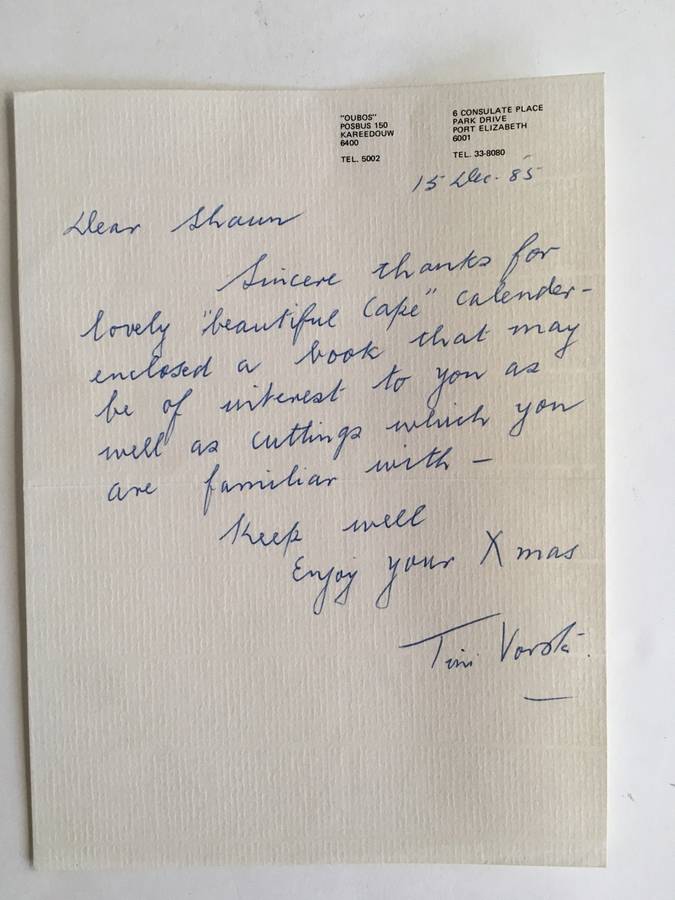 "OUBOS"
POSBUS 150
KAREEDOUW
6400
TEL. 5002
6 CONSULATE PLACE
PARK DRIVE
PORT ELIZABETH
6001
TEL. 33-8080
15 Dec. 85
Dear Shaun
Sincere thanks for
lovely "beautiful Cape" calender-
enclosed a book that may
be of interest to you as
well as cuttings which you
are familiar with -
Keep well
Enjoy your Xmas
Tini Vorster